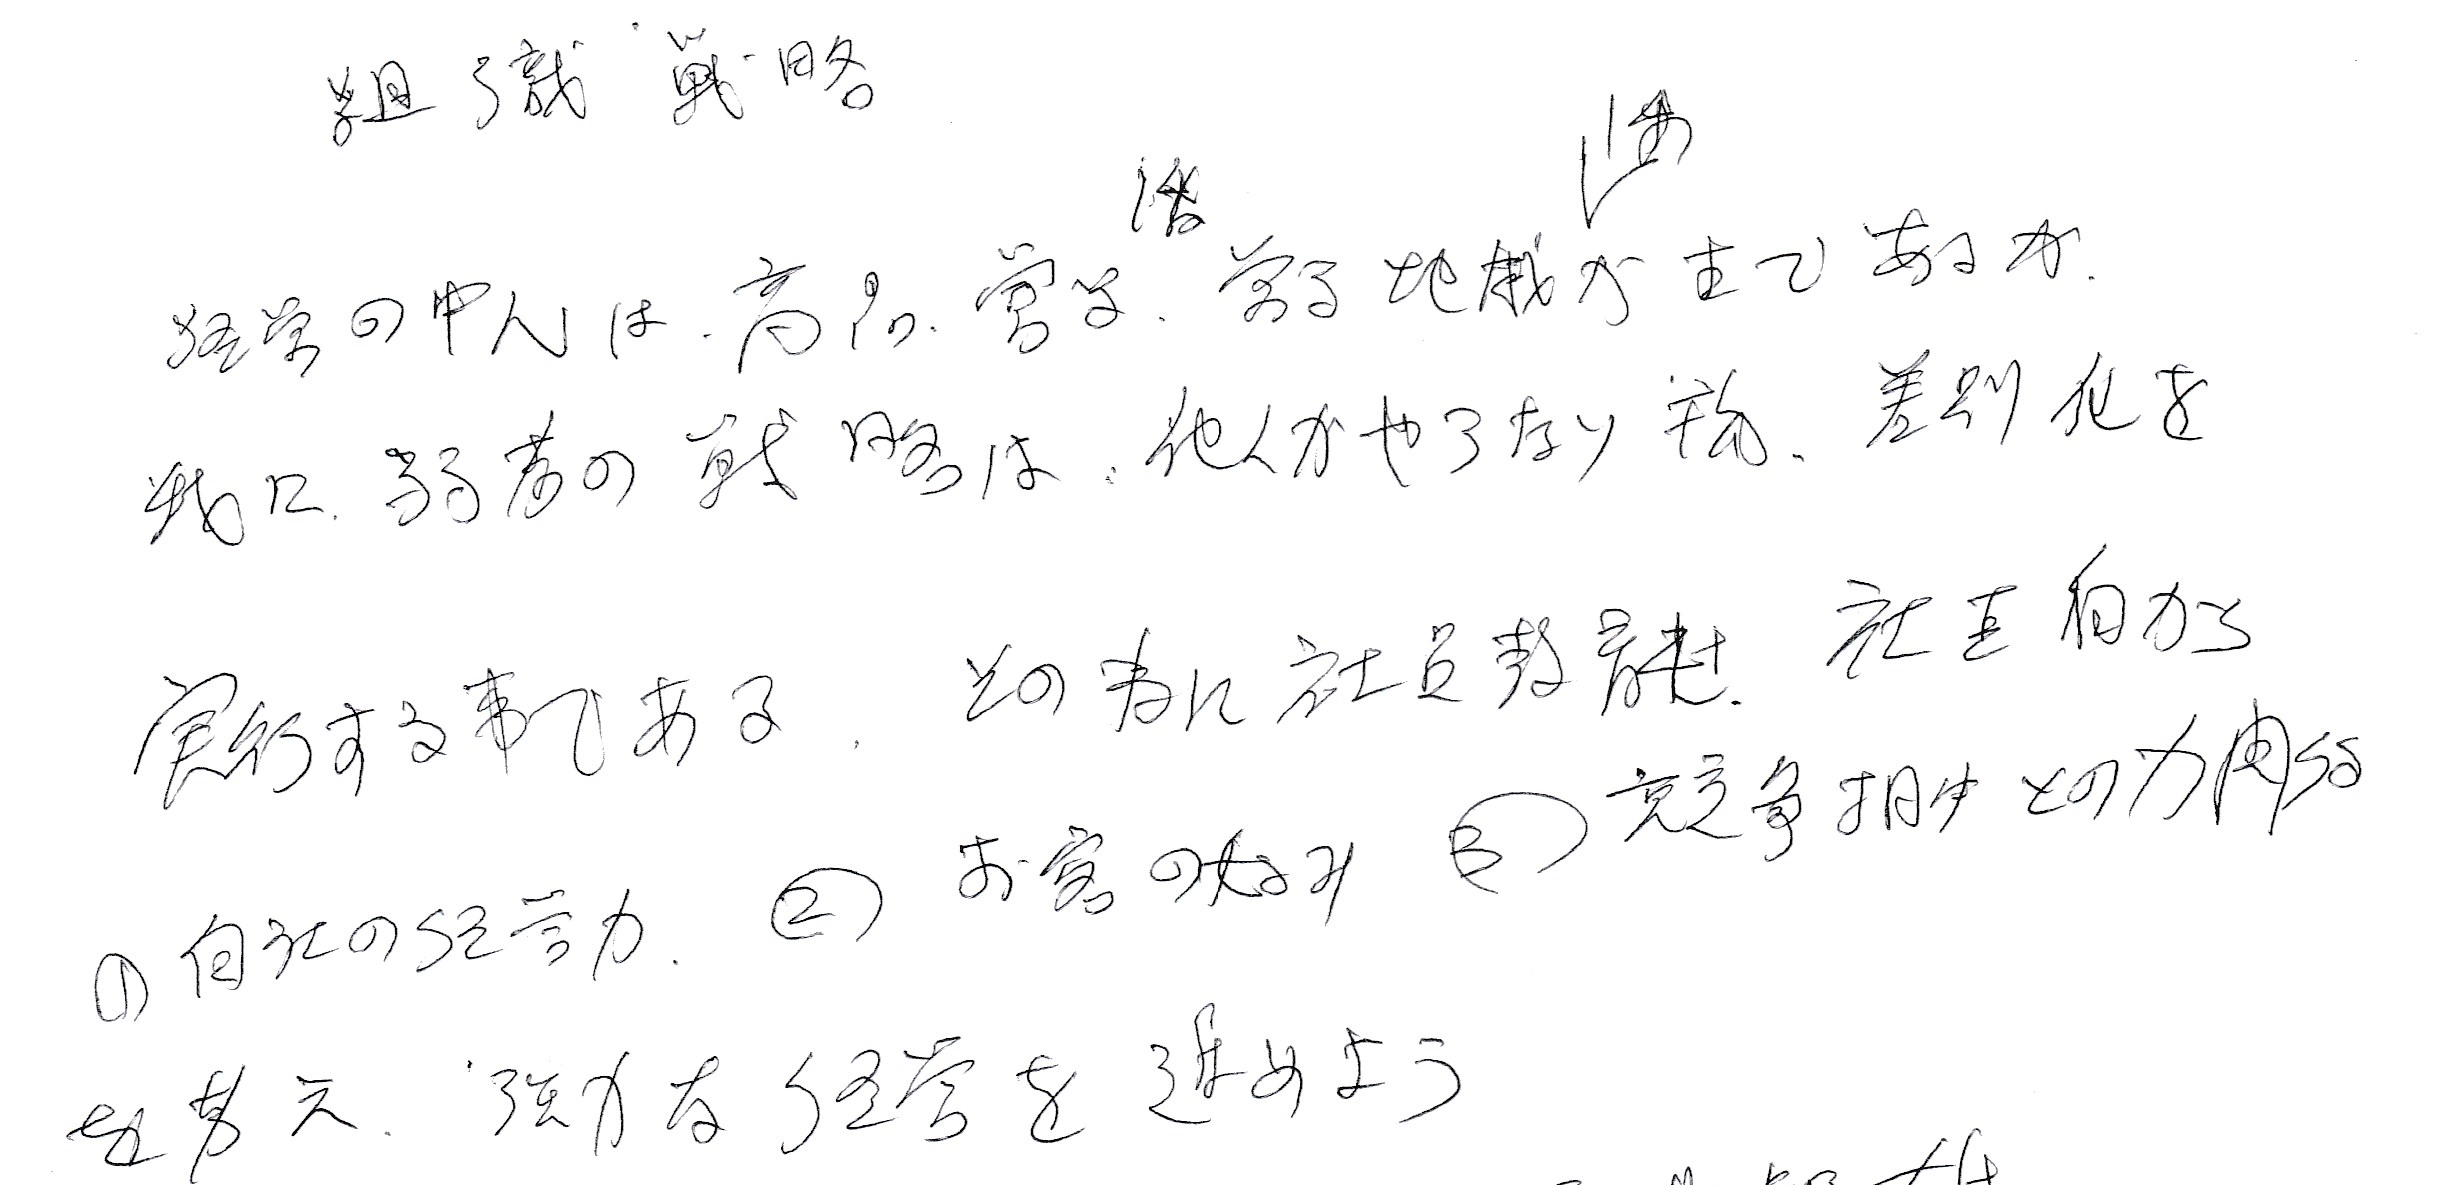 組織戦略
経営の中心は、商品、営業、営業地域が主であるが、
我に、弱者の戦略は、他人がやらない事、差別化を
実行する事である。その為に社員教育、社長自から
①自社の経営力、②お客の好み ③競争相手との力関係
を考え、強力な経営を進めよう